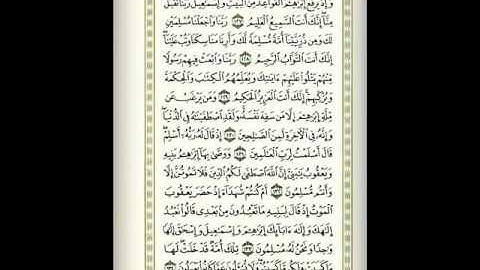 وَإِذْ يَرْفَعُ إِبْرَٰهِـۧمُ ٱلْقَوَاعِدَ مِنَ ٱلْبَيْتِ وَإِسْمَٰعِيلُ رَبَّنَا تَقَبَّلْ
مِنَّآ إِنَّكَ أَنتَ ٱلسَّمِيعُ ٱلْعَلِيمُ ١٢٧ رَبَّنَا وَٱجْعَلْنَا مُسْلِمَيْنِ
لَكَ وَمِن ذُرِّيَّتِنَآ أُمَّةً مُّسْلِمَةً لَّكَ وَأَرِنَا مَنَاسِكَنَا وَتُبْ عَلَيْنَآ
إِنَّكَ أَنتَ ٱلتَّوَّابُ ٱلرَّحِيمُ ١٢٨ رَبَّنَا وَٱبْعَثْ فِيهِمْ رَسُولًا
مِّنْهُمْ يَتْلُوا۟ عَلَيْهِمْ ءَايَٰتِكَ وَيُعَلِّمُهُمُ ٱلْكِتَٰبَ وَٱلْحِكْمَةَ
وَيُزَكِّيهِمْ إِنَّكَ أَنتَ ٱلْعَزِيزُ ٱلْحَكِيمُ ١٢٩ وَمَن يَرْغَبُ عَن
مِّلَّةِ إِبْرَٰهِـۧمَ إِلَّا مَن سَفِهَ نَفْسَهُۥ وَلَقَدِ ٱصْطَفَيْنَٰهُ فِى ٱلدُّنْيَا
وَإِنَّهُۥ فِى ٱلْـَٔاخِرَةِ لَمِنَ ٱلصَّٰلِحِينَ ١٣٠ إِذْ قَالَ لَهُۥ رَبُّهُۥٓ أَسْلِمْ
قَالَ أَسْلَمْتُ لِرَبِّ ٱلْعَٰلَمِينَ ١٣١ وَوَصَّىٰ بِهَآ إِبْرَٰهِـۧمُ بَنِيهِ
وَيَعْقُوبُ يَٰبَنِىَّ إِنَّ ٱللَّهَ ٱصْطَفَىٰ لَكُمُ ٱلدِّينَ فَلَا تَمُوتُنَّ إِلَّا
وَأَنتُم مُّسْلِمُونَ ١٣٢ أَمْ كُنتُمْ شُهَدَآءَ إِذْ حَضَرَ يَعْقُوبَ
ٱلْمَوْتُ إِذْ قَالَ لِبَنِيهِ مَا تَعْبُدُونَ مِنۢ بَعْدِى قَالُوا۟ نَعْبُدُ
إِلَٰهَكَ وَإِلَٰهَ ءَابَآئِكَ إِبْرَٰهِـۧمَ وَإِسْمَٰعِيلَ وَإِسْحَٰقَ إِلَٰهًا
وَٰحِدًا وَنَحْنُ لَهُۥ مُسْلِمُونَ ١٣٣ تِلْكَ أُمَّةٌ قَدْ خَلَتْ لَهَا
مَا كَسَبَتْ وَلَكُم مَّا كَسَبْتُمْ وَلَا تُسْـَٔلُونَ عَمَّا كَانُوا۟ يَعْمَلُونَ ١٣٤